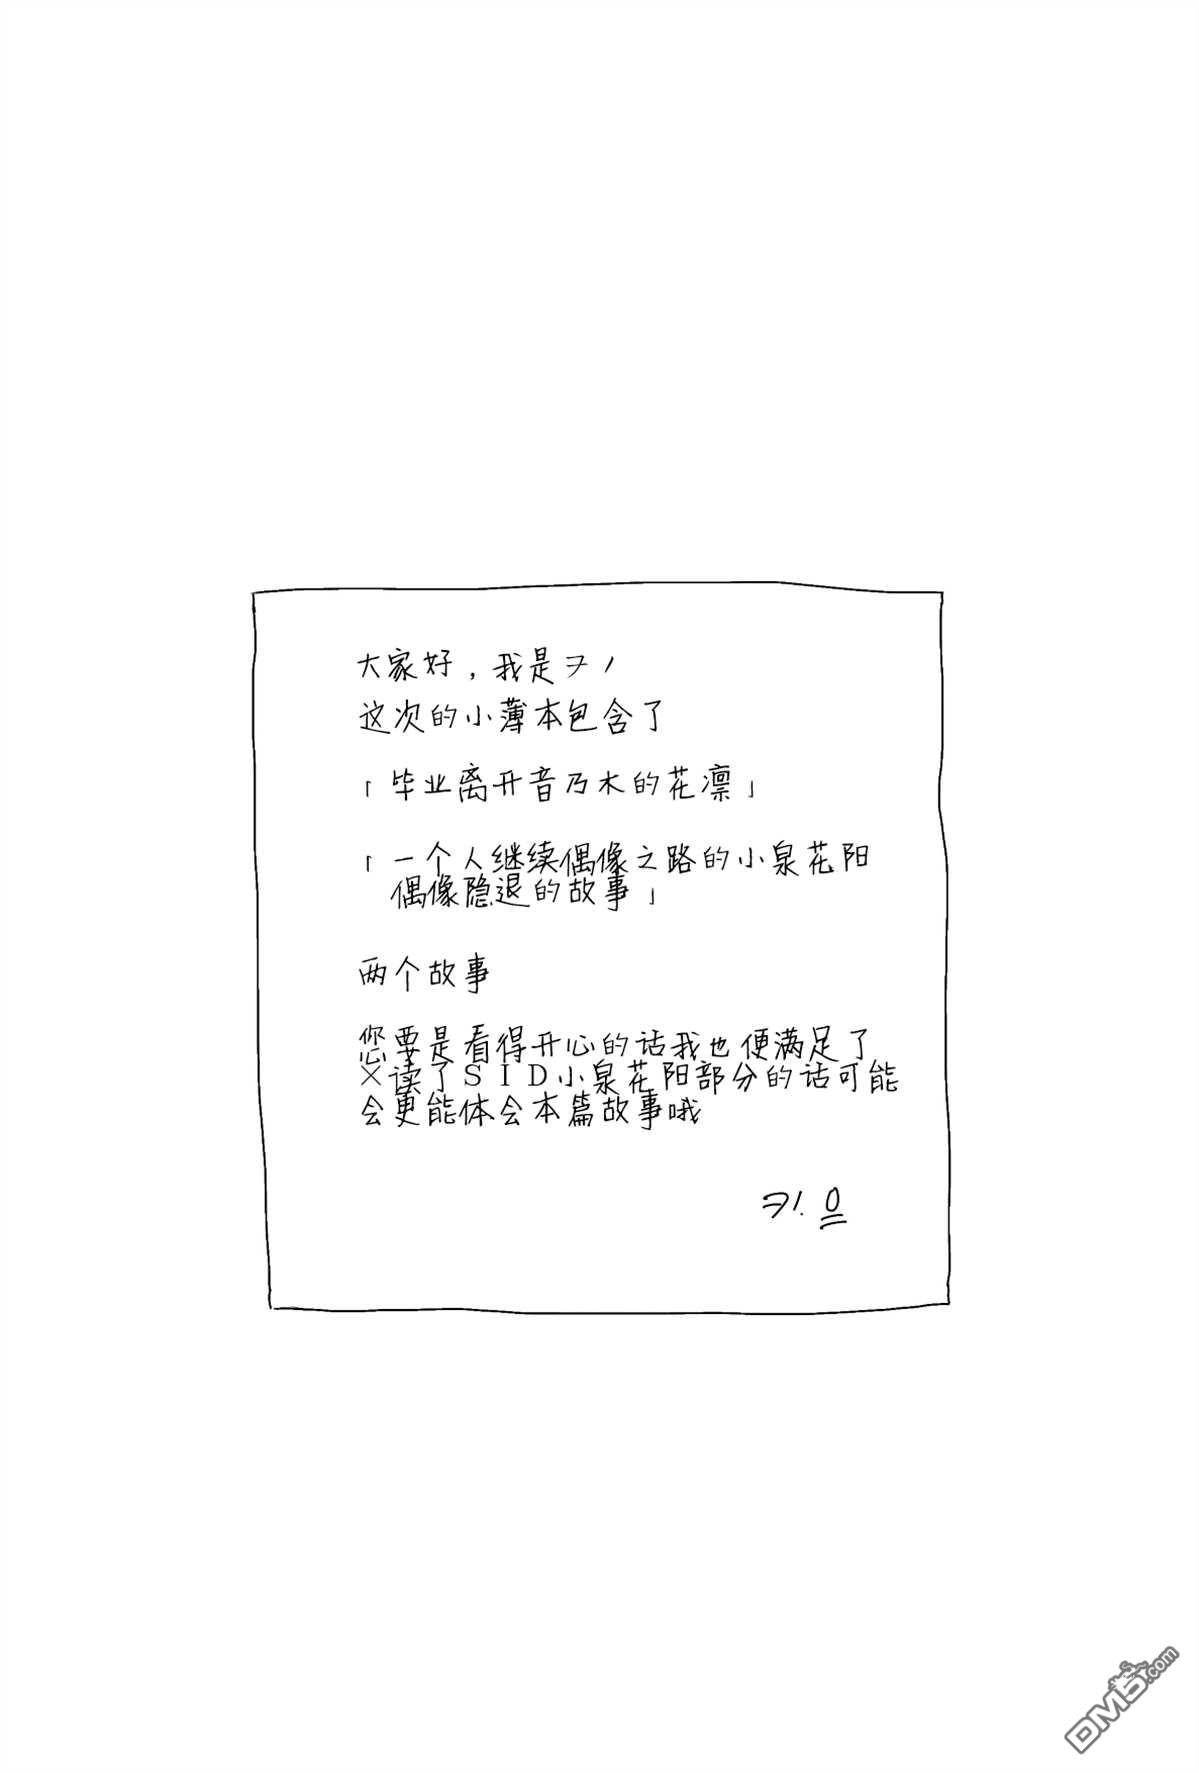 大家好，我是ヲノ
这次的小薄本包含了
「毕业离开音乃木的花凛」
「一个人继续偶像之路的小泉花阳
偶像隐退的故事」
两个故事
您要是看得开心的话我也便满足了
×读了SID小泉花阳部分的话可能
会更能体会本篇故事哦
DM5.com